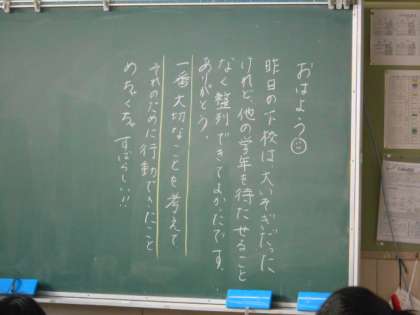 おはよう
昨日の下校は大いそぎだった
けれど、他の学年を待たせること
なく整列できてよかたです。
ありがとう。
一番大切なことを考えて
それのために行動できたこと
めちゃくちゃ すばらしい!!